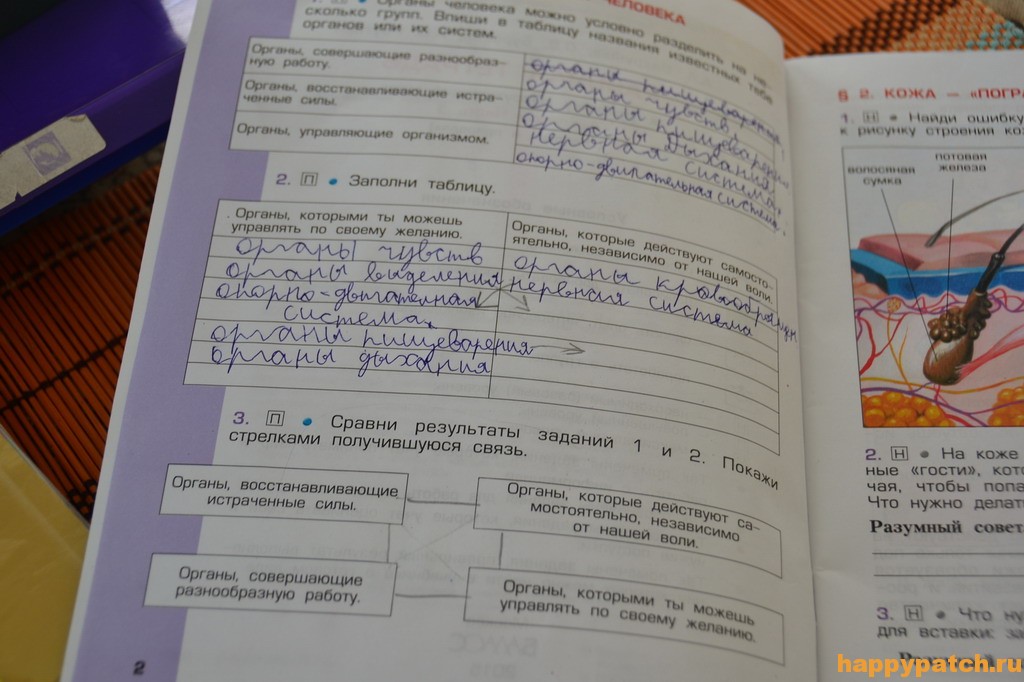 ЧЕЛОВЕКА
Органы человека можно условно разделить на не-
сколько групп. Впиши в таблицу названия известных тебе
органов или их систем.
Органы, совершающие разнообраз-
ную работу.
Органы, восстанавливающие истра-
ченные силы.
Органы, управляющие организмом.
органы пищеварения,
органы чувств
органы пищеварения,
органы дыхания
нервная система,
опорно-двигательная система,
2. П • Заполни таблицу.
Органы, которыми ты можешь
управлять по своему желанию.
Органы, которые действуют самосто-
ятельно, независимо от нашей воли.
органы чувств
органы выделения
опорно-двигательная
система,
органы пищеварения
органы дыхания
органы кровообращен
нервная система
3. П • Сравни результаты заданий 1 и 2. Покажи
стрелками получившуюся связь.
Органы, восстанавливающие
истраченные силы.
Органы, которые действуют са-
мостоятельно, независимо
от нашей воли.
Органы, совершающие
разнообразную работу.
Органы, которыми ты можешь
управлять по своему желанию.
2
§ 2. КОЖА — «ПОГРА
1. Н • Найди ошибку
к рисунку строения кож
волосяная
сумка
потовая
железа
2. Н • На коже
ные «гости», кото
чая, чтобы попа
Что нужно делат
Разумный совет
3. Н • Что ну
для вставки: за
happypatch.ru